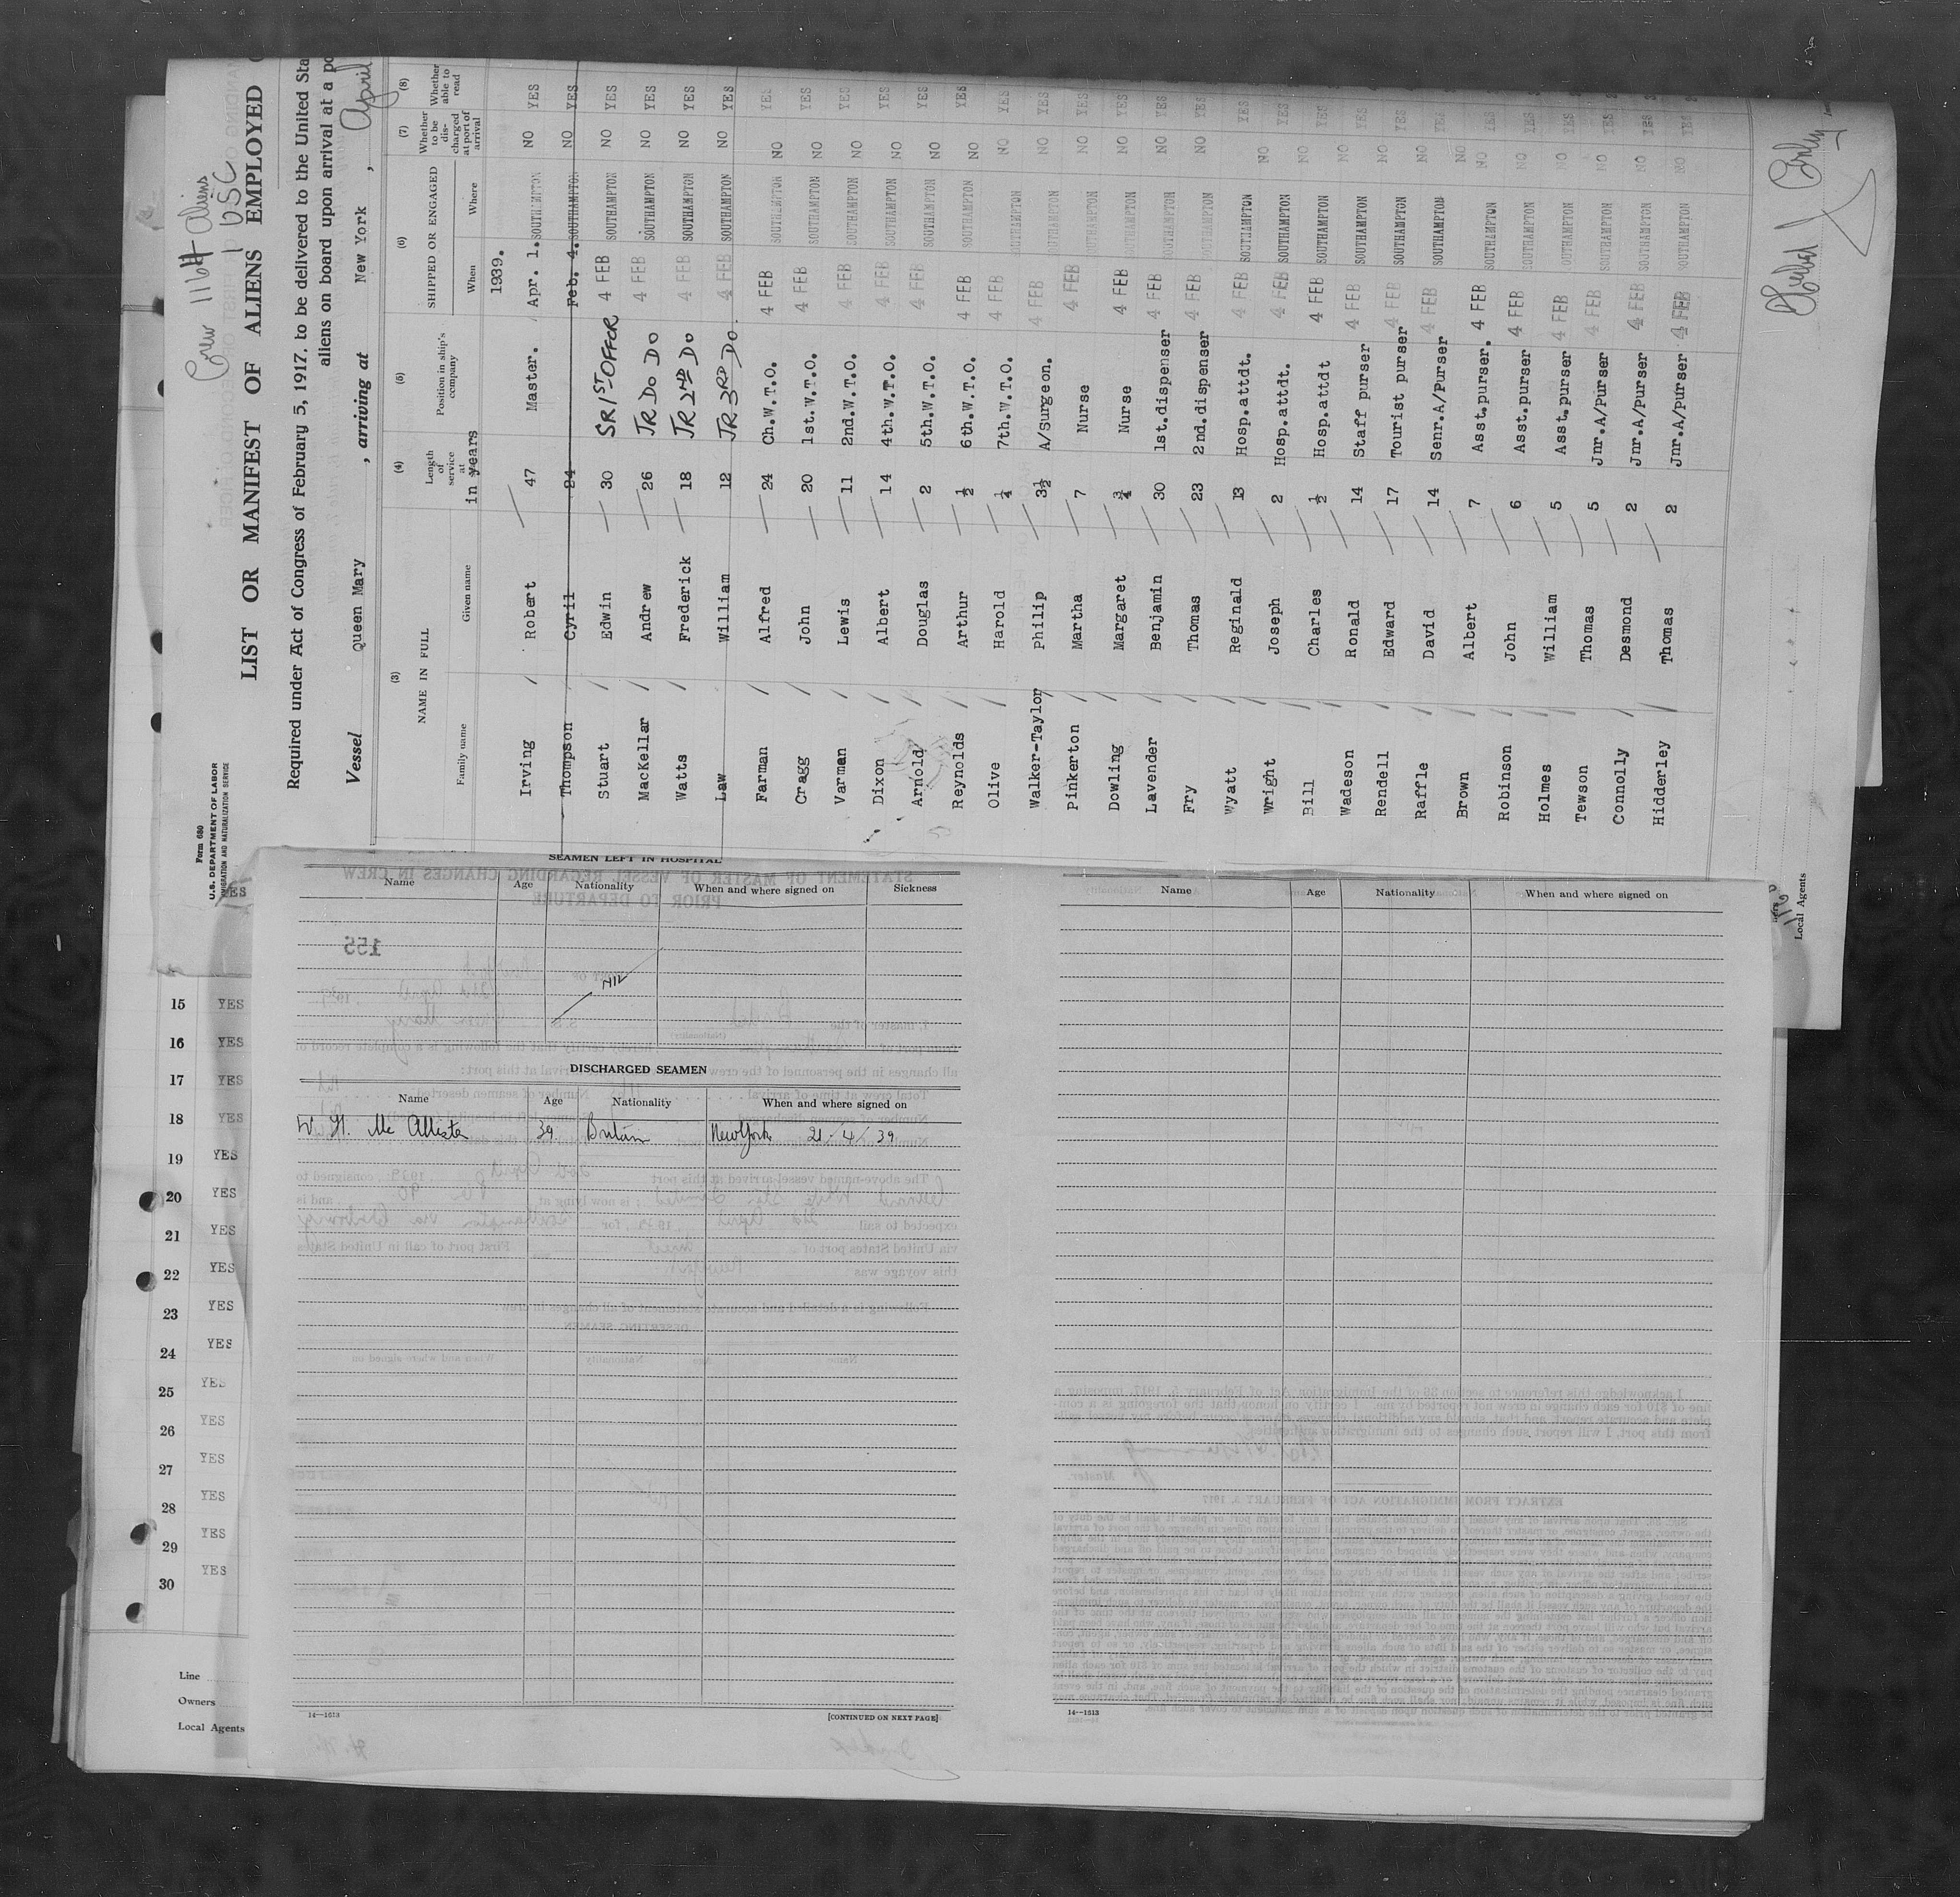 Crew 1164 Aliens
1 USC
Form 680
U.S. DEPARTMENT OF LABOR
IMMIGRATION AND NATURALIZATION SERVICE
LIST OR MANIFEST OF ALIENS EMPLOYED
Required under Act of Congress of February 5, 1917, to be delivered to the United Sta
aliens on board upon arrival at a po
Vessel Queen Mary , arriving at New York , April
(3) (4) (5) (6) (7) (8)
NAME IN FULL Length of service at in years Position in ship's company SHIPPED OR ENGAGED Whether to be discharged at port of arrival Whether able to read
Family name Given name When Where
1939.
Irving Robert 47 Master. Apr. 1. SOUTHAMPTON NO YES
Thompson Cyril 24 Feb. 4. SOUTHAMPTON NO YES
Stuart Edwin 30 SR 1ST OFFCR 4 FEB SOUTHAMPTON NO YES
MacKellar Andrew 26 JR DO DO 4 FEB SOUTHAMPTON NO YES
Watts Frederick 18 JR 2ND DO 4 FEB SOUTHAMPTON NO YES
Law William 12 JR 3RD DO. 4 FEB SOUTHAMPTON NO YES
Farman Alfred 24 Ch.W.T.O. 4 FEB SOUTHAMPTON NO YES
Cragg John 20 1st.W.T.O. 4 FEB SOUTHAMPTON NO YES
Varman Lewis 11 2nd.W.T.O. 4 FEB SOUTHAMPTON NO YES
Dixon Albert 14 4th.W.T.O. 4 FEB SOUTHAMPTON NO YES
Arnold Douglas 2 5th.W.T.O. 4 FEB SOUTHAMPTON NO YES
Reynolds Arthur ½ 6th.W.T.O. 4 FEB SOUTHAMPTON NO YES
Olive Harold ¼ 7th.W.T.O. 4 FEB SOUTHAMPTON NO YES
Walker-Taylor Philip 3½ A/Surgeon. 4 FEB SOUTHAMPTON NO YES
Pinkerton Martha 7 Nurse 4 FEB SOUTHAMPTON NO YES
Dowling Margaret ¾ Nurse 4 FEB SOUTHAMPTON NO YES
Lavender Benjamin 30 1st.dispenser 4 FEB SOUTHAMPTON NO YES
Fry Thomas 23 2nd.dispenser 4 FEB SOUTHAMPTON NO YES
Wyatt Reginald 13 Hosp.attdt. 4 FEB SOUTHAMPTON NO YES
Wright Joseph 2 Hosp.attdt. 4 FEB SOUTHAMPTON NO YES
Bill Charles ½ Hosp.attdt 4 FEB SOUTHAMPTON NO YES
Wadeson Ronald 14 Staff purser 4 FEB SOUTHAMPTON NO YES
Rendell Edward 17 Tourist purser 4 FEB SOUTHAMPTON NO YES
Raffle David 14 Senr.A/Purser 4 FEB SOUTHAMPTON NO YES
Brown Albert 7 Asst.purser. 4 FEB SOUTHAMPTON NO YES
Robinson John 6 Asst.purser 4 FEB SOUTHAMPTON NO YES
Holmes William 5 Asst.purser 4 FEB SOUTHAMPTON NO YES
Tewson Thomas 5 Jnr.A/Purser 4 FEB SOUTHAMPTON NO YES
Connolly Desmond 2 Jnr.A/Purser 4 FEB SOUTHAMPTON NO YES
Hidderley Thomas 2 Jnr.A/Purser 4 FEB SOUTHAMPTON NO YES
Local Agents
YES
15 YES
16 YES
17 YES
18 YES
19 YES
20 YES
21 YES
22 YES
23 YES
24 YES
25 YES
26 YES
27 YES
28 YES
29 YES
30 YES
Line
Owners
Local Agents
SEAMEN LEFT IN HOSPITAL
Name Age Nationality When and where signed on Sickness
Nil
DISCHARGED SEAMEN
Name Age Nationality When and where signed on
W. H. Mc Allister 39 Britain New York 21/4/39
14—1613 [CONTINUED ON NEXT PAGE]
Name Age Nationality When and where signed on
14—1613